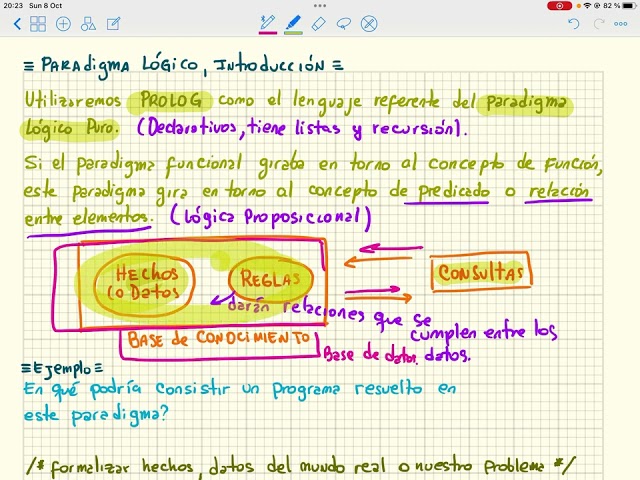 20:23 Sun 8 Oct
82 %
≡ PARADigma LÓgico, Introducción ≡
Utilizaremos PROLOG como el lenguaje referente del paradigma
Lógico Puro. (Declarativos, tiene listas y recursión).
Si el paradigma funcional giraba en torno al concepto de función,
este paradigma gira en torno al concepto de predicado o relación
entre elementos. (Lógica Proposicional)
HEchos
(o Datos
REGLAS
CONSULTAS
darán relaciones que se
cumplen entre los
datos.
BASE de CONOCIMIENTO
Base de datos
≡Ejemplo≡
En qué podría consistir un programa resuelto en
este paradigma?
/* formalizar hechos, datos del mundo real o nuestro problema */